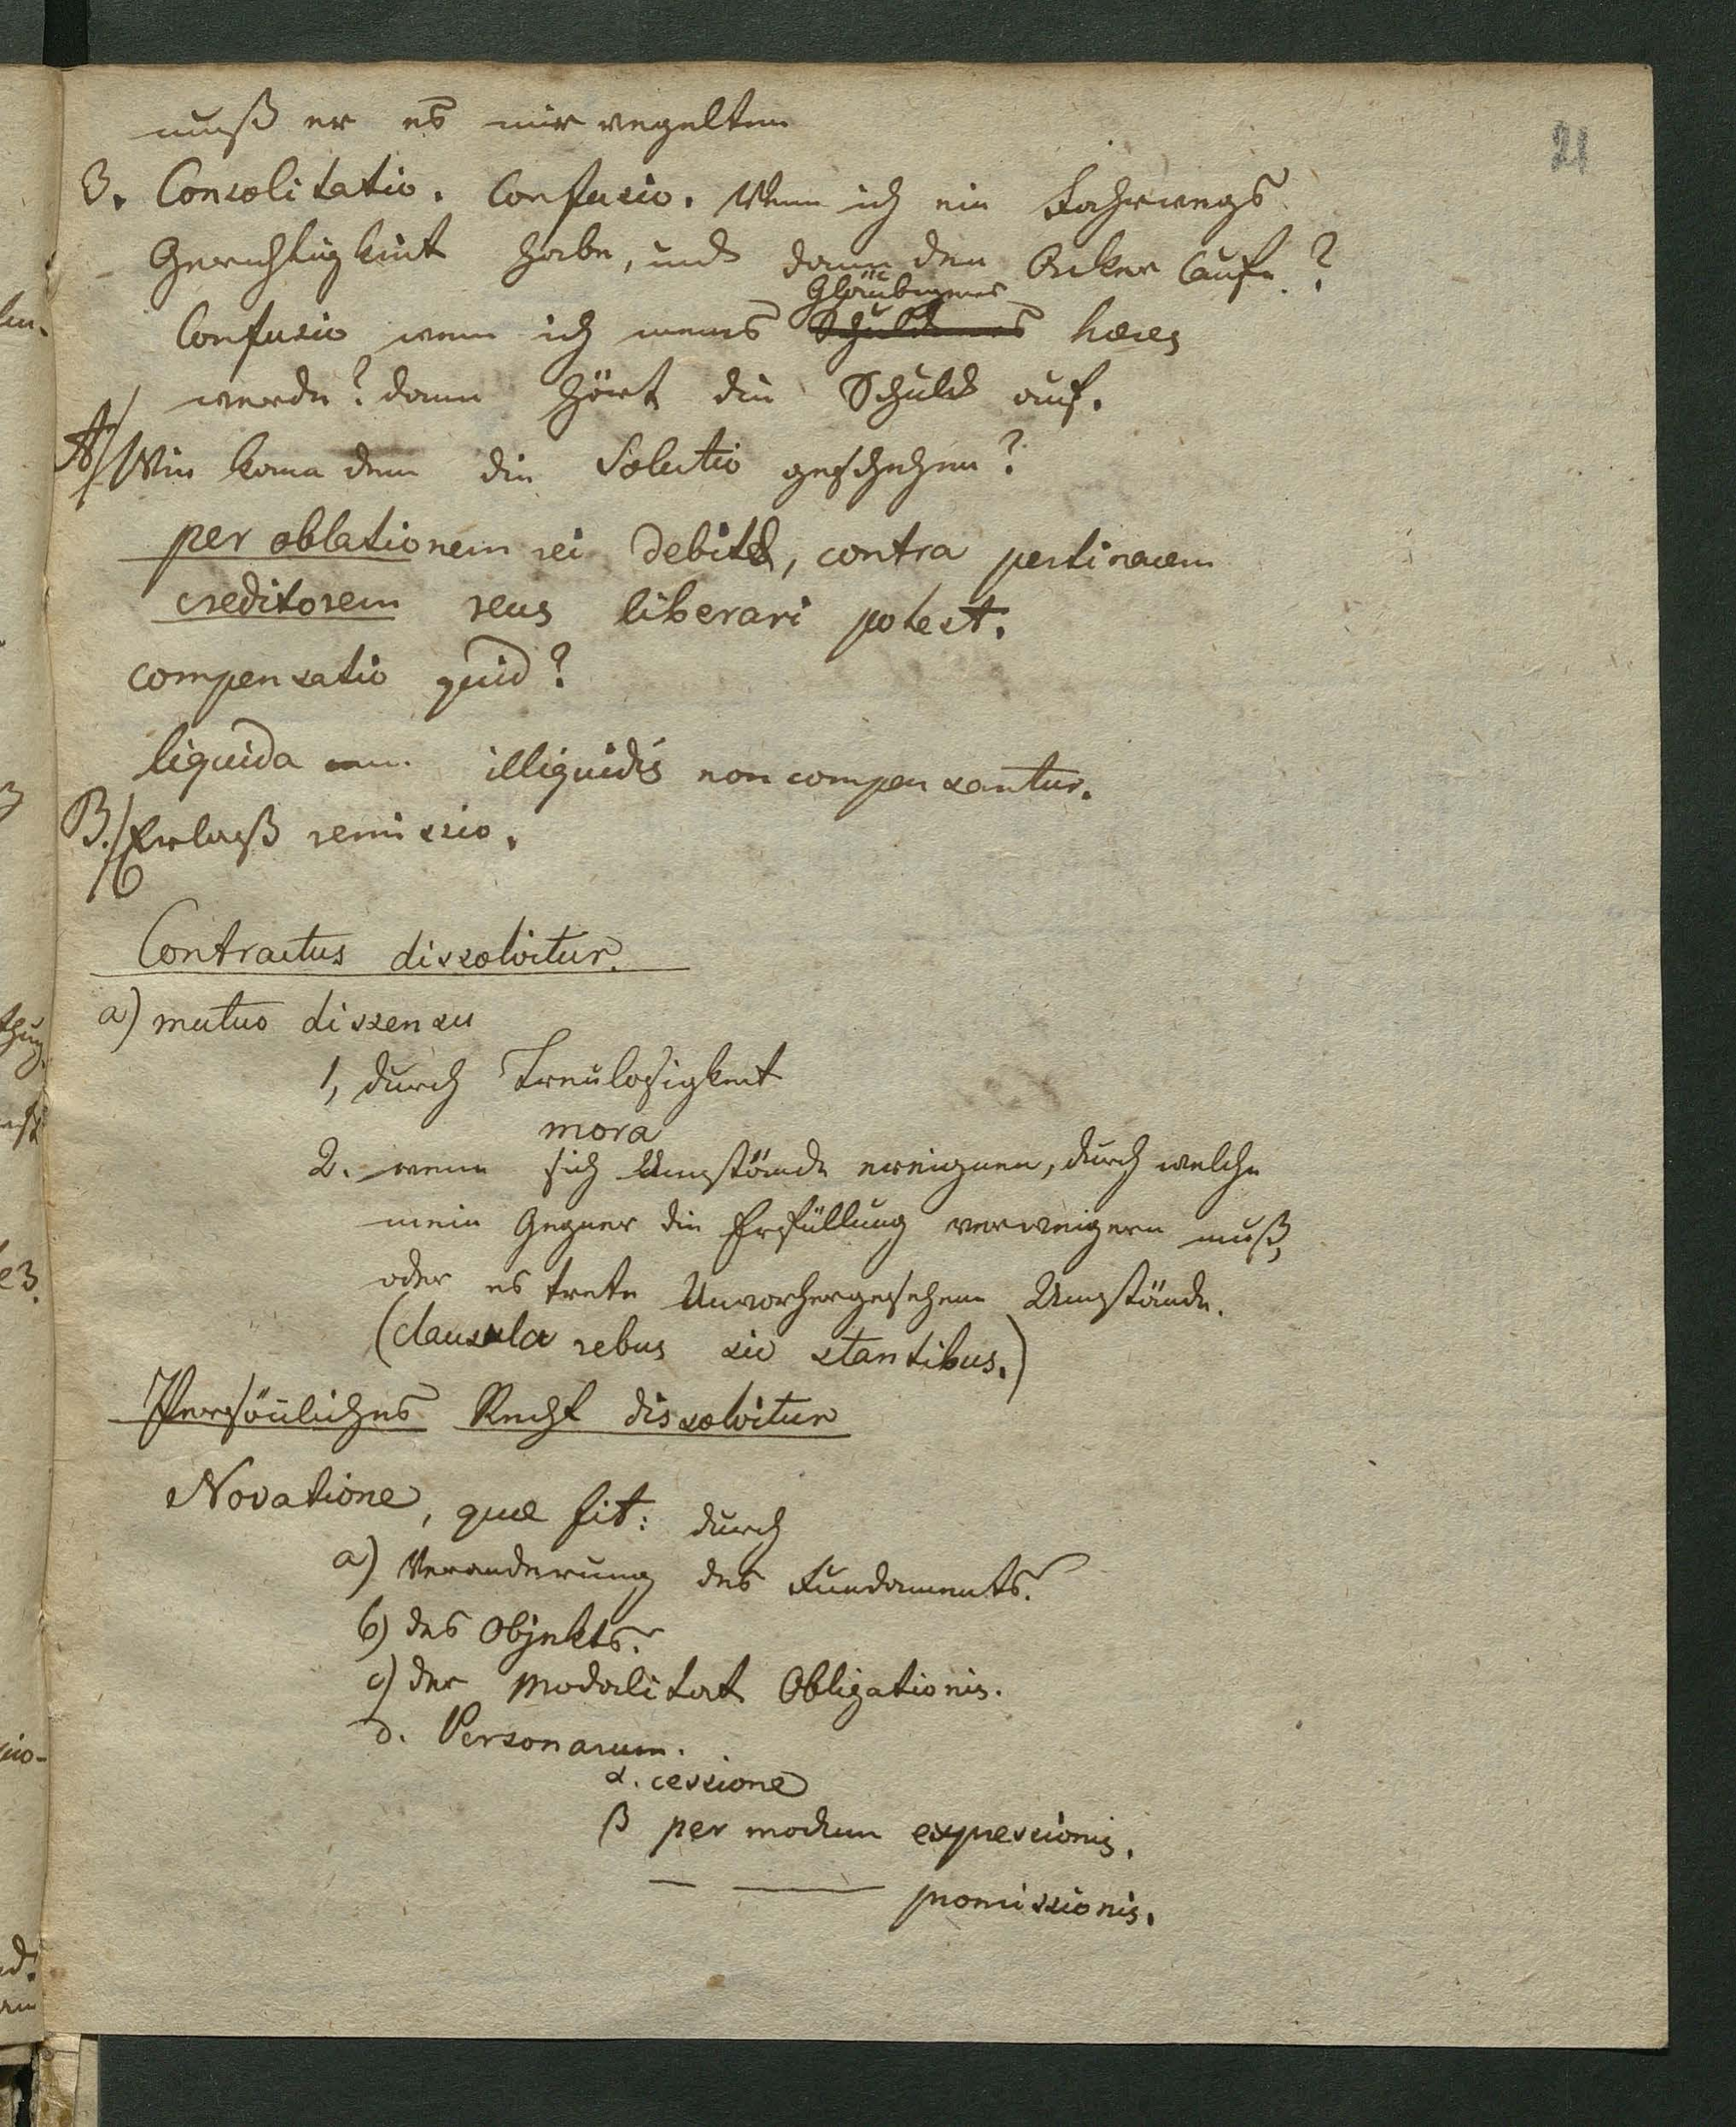 21
muß er es mir vegelten
3. Consolitatio. Confusio. Wenn ich ein Fahrwegs
Gerechtigkeit habe, und dann den Acker Caufe?
Gläubigers
Confusio wenn ich meines Schuldners hæres
werde? dann hört die Schuld auf.
A/ Wie kann denn die Solutio geschehen?
per oblationem rei debitæ, contra pertinacem
creditorem reus liberari potest.
compensatio quid?
liquida cum illiquidis non compensantur.
B./ Erlaß remissio.
Contractus dissolvitur.
a) mutuo dissensu
1, durch Treulosigkeit
mora
2. wenn sich Umstände ereignen, durch welche
mein Gegner die Erfüllung verweigern muß,
oder es trete Unvorhergesehene Umstände.
(clausula rebus sic stantibus.)
Persönliches Recht dissolvitur
Novatione, quæ fit: durch
a) Veranderung des Fundaments.
b) des Objekts.
c) der Modalitat Obligationis.
d. Personarum.
α. cessione
β per modum expressionis.
— — promissionis.